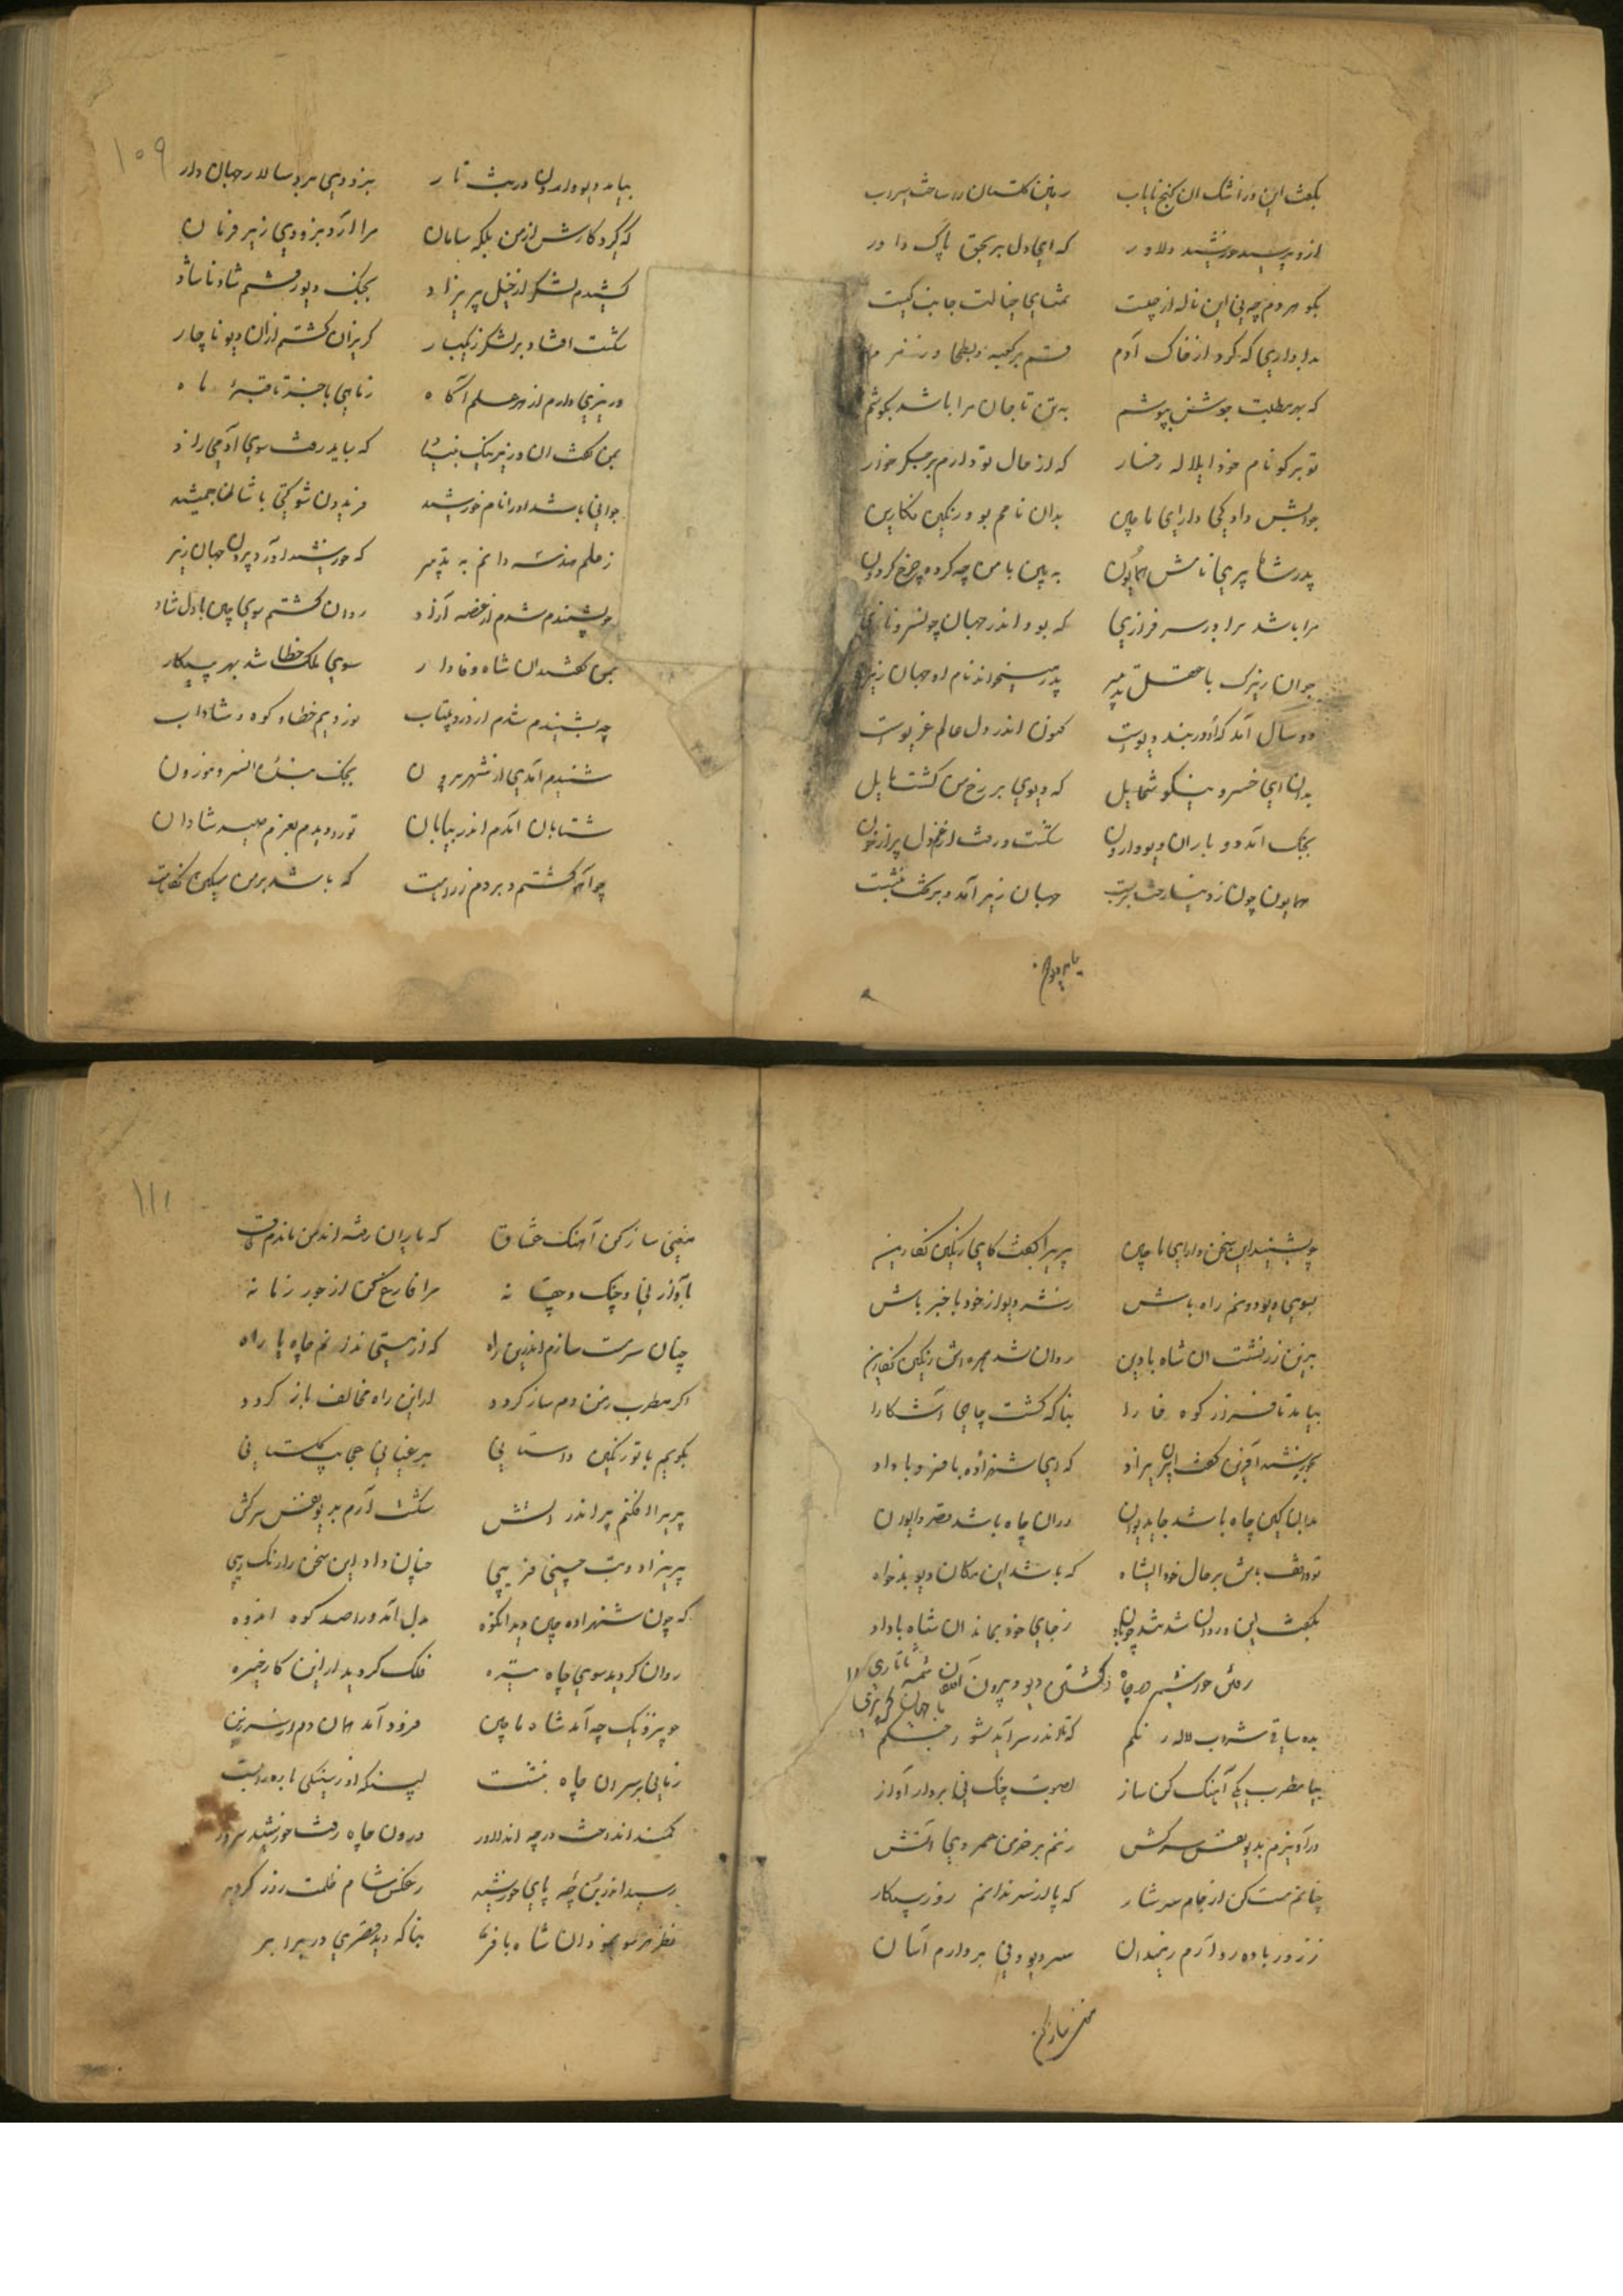 بگفت این و ز اشک ان کنج نایاب زمین کلستان را ساخت سیراب
ازو پرسید خورشید دلاور که ای دل بر بحق پاک داور
بکو مردم چه نی این ناله از چیست خیالت جانب کیست
بداداری که کرد از خاک آدم قسم بر کعبه و بطحا و زمزم
که بهر مطلبت جوشن بپوشم به تن تا جان مرا باشد بکوشم
تو بر کو نام خود ای لاله رخسار که از حال تو دارم بر جکر خار
جوابش داد کی دارای ماچین بدان نامم بود رنکین نکارین
پدر شاه پری نامش همایون به بین با من چه کرده چرخ کردون
مرا باشد برادر سرفرازی که بود اندر جهان چو
جوان زیرک با عقل تدبیر پدر میخواند نام او جهان زیر
دو سال آمد که او در بند دیوست کنون اندر دل عالم غریوست
بدان ای خسرو نیکو شمایل که دیوی بر رخ من کشت مایل
بجنک آمد دو باران دیو وارون شکست و رفت از غم دل پر از خون
همایون چون ز دنیا رخت بربست جهان زیر آمد و بر تخت بنشست
بیامد دیو وارون در شب تار بدزدی برد سالار جهان دار
که کرد کارش از من بلکه سامان مرا آرد بدزدی زیر فرمان
کشیدم لشکر از خیل پریزاد بجنک دیو رفتم شاد ناشاد
شکست افتاد بر لشکر زیکبار کریزان کشتم از ان دیو ناچار
وزیری دارم از هر علم آکاه ز ماهی با خبر تا قبهٔ ماه
بمن کفت ان وزیر نیک بنیاد که باید رفت سوی آدمی زاد
جوانی باشد او را نام خورشید فریدون شوکتی با شان جمشید
ز علم هندسه دانم به تدبیر که خورشید آورد بیرون جهان زیر
چو بشنیدم شدم از غصه آزاد روان کشتم سوی چین با دل شاد
بمن کفتند ان شاه وفادار سوی ملک خطا شد بهر پیکار
چه بشنیدم شدم از درد بیتاب
شنیدم آمدی از شهر بیرون بجنک
شتابان آمدم اندر بیابان تو را دیدم بعزم صید شادان
چو آهو کشتم و بردم ز راهت که باشد بر من مسکین نکاهت
چو بشنید این سخن دارای ماچین پریرا کفت کای رنکین نکارین
بسوی دیو دونم راه باش ز شر دیو از خود با خبر باش
بزین زر نشست ان شاه با دین روان شد همره اش رنکین نکارین
بیامد تا فراز کوه خارا بناکه کشت چاهی آشکارا
بخورشید آفرین کفت ان پریزاد که ای شهزاده با فر و با داد
بدان کین چاه باشد جای دیوان در ان چاه باشد قصر و ایوان
تو واقف باش بر حال خود ایشاه که باشد این مکان دیو بدخواه
بگفت این و روان شد شد چو باد ز جای خود بماند ان شاه با داد
رفتن خورشید در چاه و کشتن دیو و بیرون آمدن
بده ساقی شراب لاله رنکم که تا اندر سر آید شور جنکم
بیا مطرب یکی آهنک کن ساز بصوت چنک نی بردار آواز
درآویزم بدیو نفس سرکش زنم بر خرمن عمر وی آتش
چنانم مست کن از جام سرشار که پا از سر ندانم روز پیکار
ز زور باده رو آرم بمیدان سر دیو دنی بردارم آسان
مغنی ساز کن آهنک عشاق که یاران رفته اند من مانده‌ام طاق
بآواز نی و چنک و چغانه مرا فارغ کن از جور زمانه
چنان سرمست سازم اندرین راه که از مستی ندانم چاه یا راه
اکر مطرب بمن دم ساز کردد از این راه مخالف باز کردد
بکویم با تو رنکین داستانی
پریرا افکنم پر اندر آتش شکست آرم بدیو نفس سرکش
پریزاد و بت چینی فریبی چنان داد این سخن را رنک زیبی
که چون شهزاده چین دید انکوه بدل آمد ورا صد کوه اندوه
روان کردید سوی چاه تیره فلک کردید از این کار خیره
چو نزدیک چه آمد شاه ماچین فرود آمد همان دم از سر زین
زمانی بر سر ان چاه بنشست پس انکه از زینکی باره را بست
کمند انداخت در چه ان دلاور درون چاه رفت خورشید سرور
رسید اندر بن چه پای خورشید ز عکس شام ظلمت روز کردید
نظر هر سو نمود ان شاه با فر بناکه دید قصری در برابر
مغنی ساز کن
۱۰۹
۱۱۱